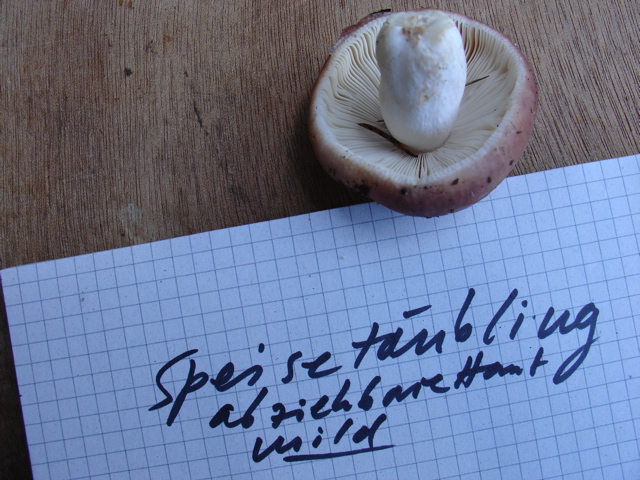 Speisetäubling
abziehbare Haut
mild